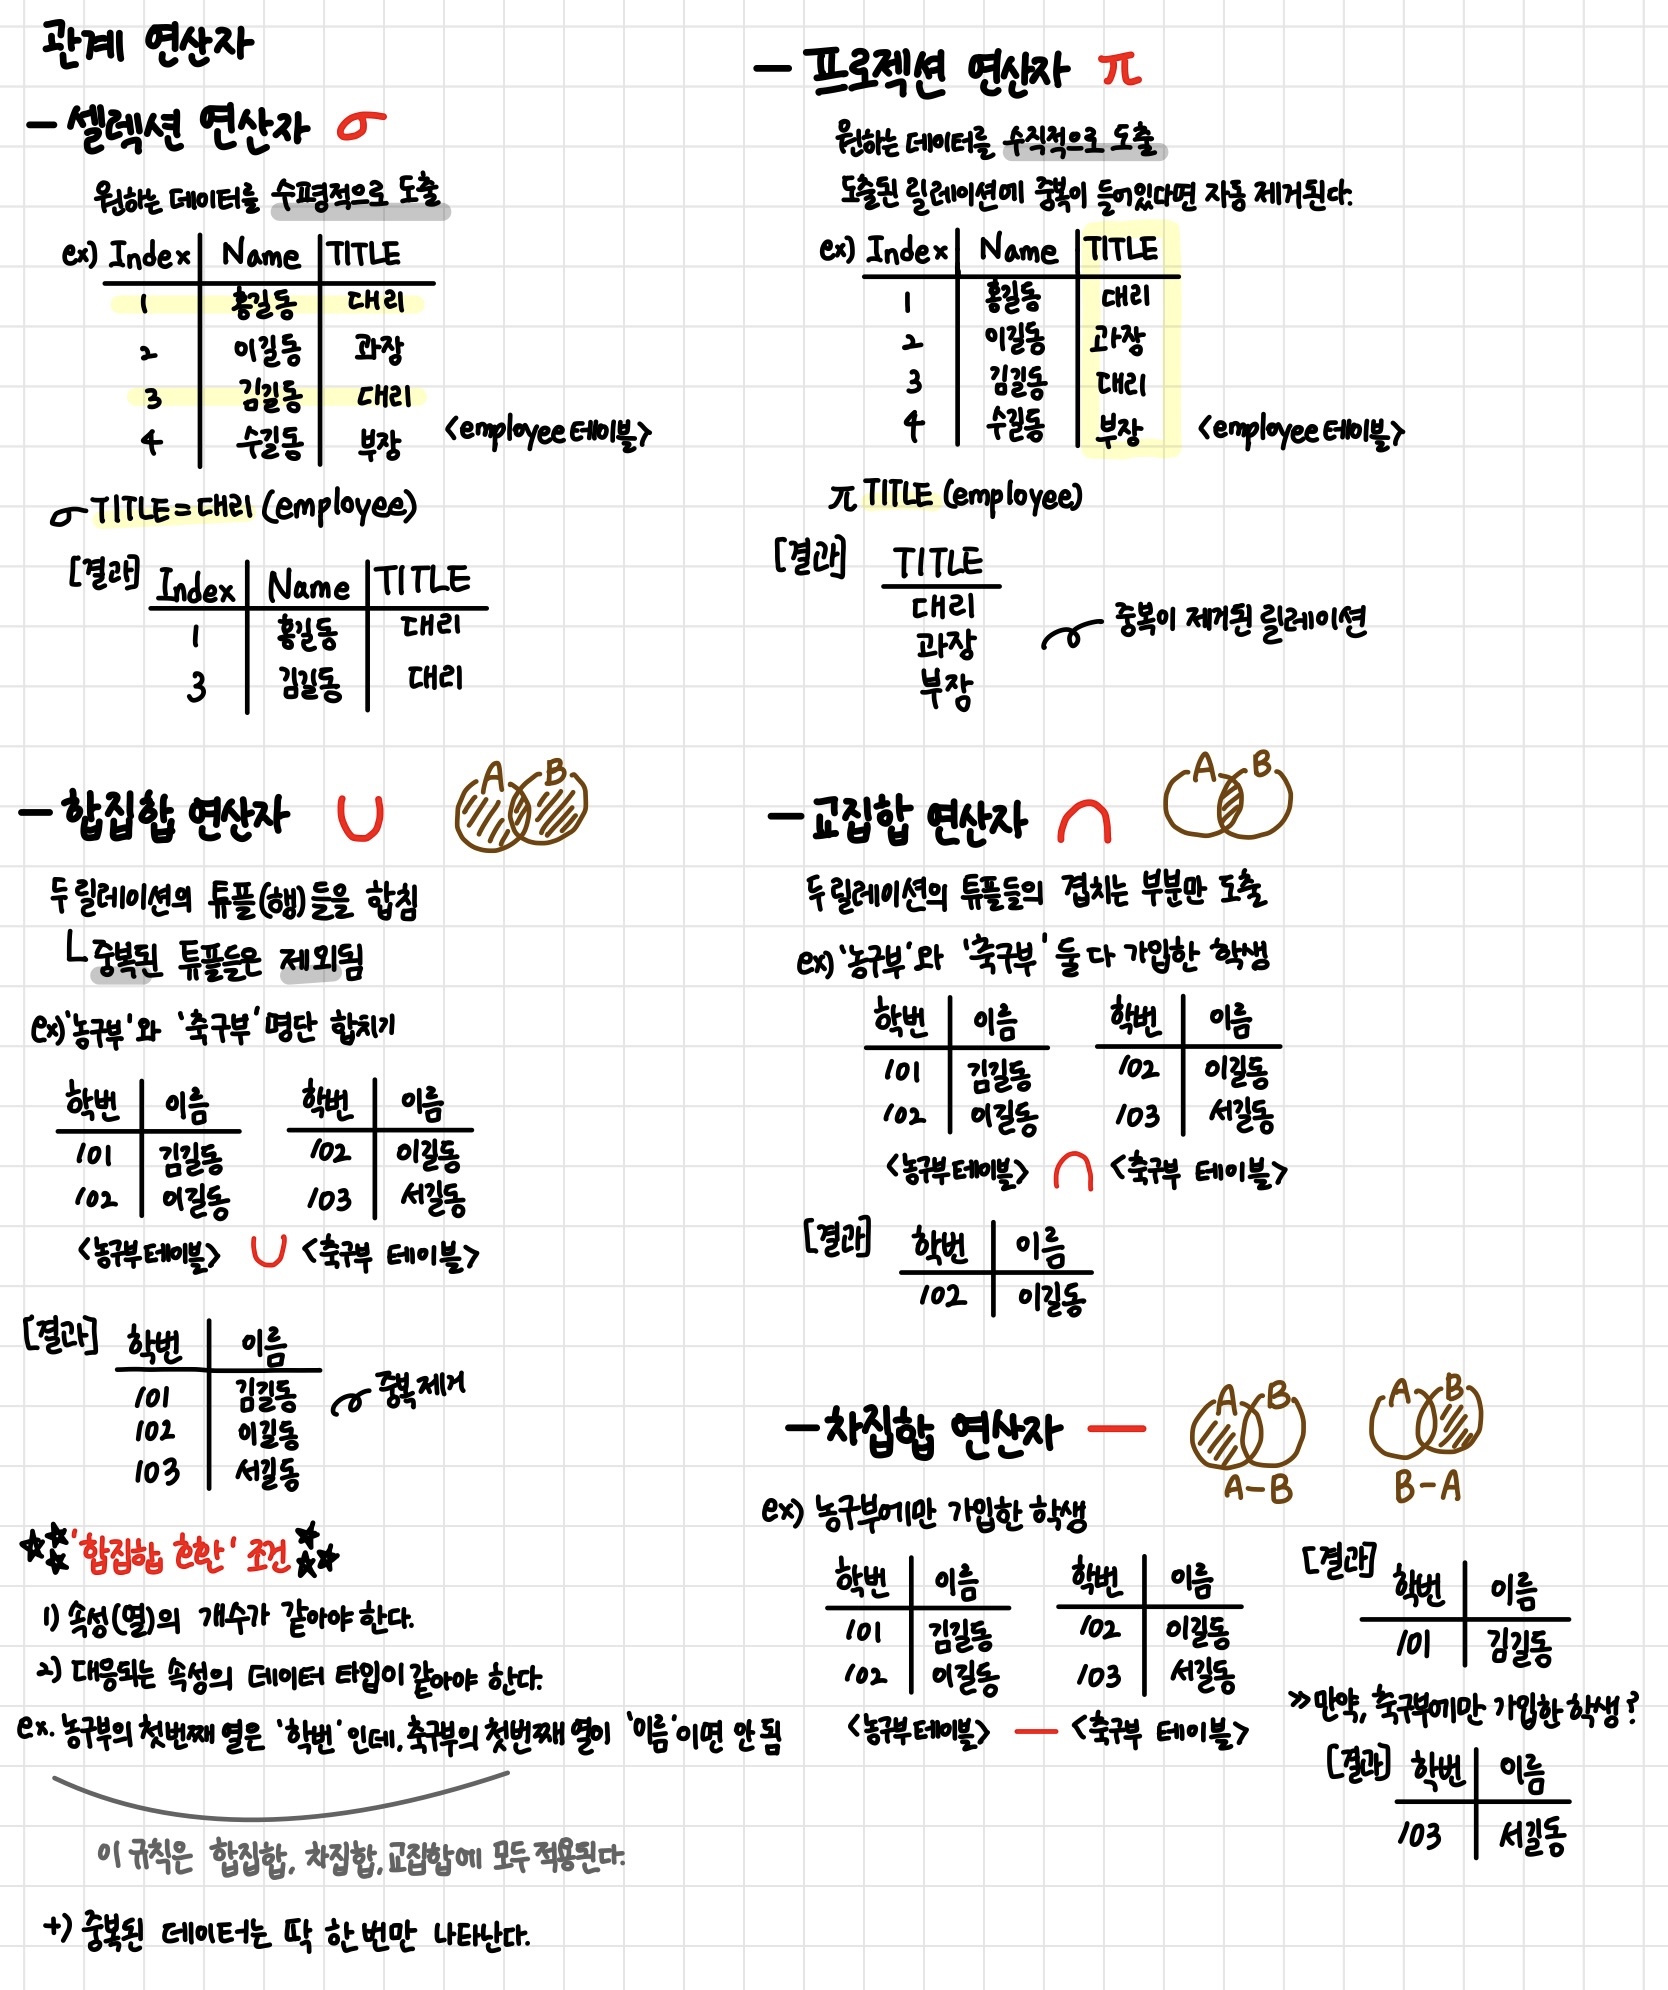 관계 연산자
- 셀렉션 연산자 σ
원하는 데이터를 수평적으로 도출
ex) Index Name TITLE
1 홍길동 대리
2 이길동 과장
3 김길동 대리
4 수길동 부장
<employee 테이블>
σ TITLE = 대리 (employee)
[결과] Index Name TITLE
1 홍길동 대리
3 김길동 대리
- 프로젝션 연산자 π
원하는 데이터를 수직적으로 도출
도출된 릴레이션에 중복이 들어있다면 자동 제거된다.
ex) Index Name TITLE
1 홍길동 대리
2 이길동 과장
3 김길동 대리
4 수길동 부장
<employee 테이블>
π TITLE (employee)
[결과] TITLE
대리
과장
부장
중복이 제거된 릴레이션
- 합집합 연산자 ∪
A B
두 릴레이션의 튜플(행)들을 합침
ㄴ 중복된 튜플들은 제외됨
ex) '농구부'와 '축구부' 명단 합치기
학번 이름 학번 이름
101 김길동 102 이길동
102 이길동 103 서길동
<농구부 테이블> ∪ <축구부 테이블>
[결과] 학번 이름
101 김길동
102 이길동
103 서길동
중복 제거
☆☆☆ '합집합 호환' 조건 ☆☆☆
1) 속성(열)의 개수가 같아야 한다.
2) 대응되는 속성의 데이터 타입이 같아야 한다.
ex. 농구부의 첫번째 열은 '학번'인데, 축구부의 첫번째 열이 '이름'이면 안 됨
이 규칙은 합집합, 차집합, 교집합에 모두 적용된다.
+) 중복된 데이터는 딱 한 번만 나타난다.
- 교집합 연산자 ∩
A B
두 릴레이션의 튜플들의 겹치는 부분만 도출
ex) '농구부'와 '축구부' 둘 다 가입한 학생
학번 이름 학번 이름
101 김길동 102 이길동
102 이길동 103 서길동
<농구부 테이블> ∩ <축구부 테이블>
[결과] 학번 이름
102 이길동
- 차집합 연산자 —
A B
A-B
A B
B-A
ex) 농구부에만 가입한 학생
학번 이름 학번 이름
101 김길동 102 이길동
102 이길동 103 서길동
<농구부 테이블> — <축구부 테이블>
[결과] 학번 이름
101 김길동
>> 만약, 축구부에만 가입한 학생?
[결과] 학번 이름
103 서길동